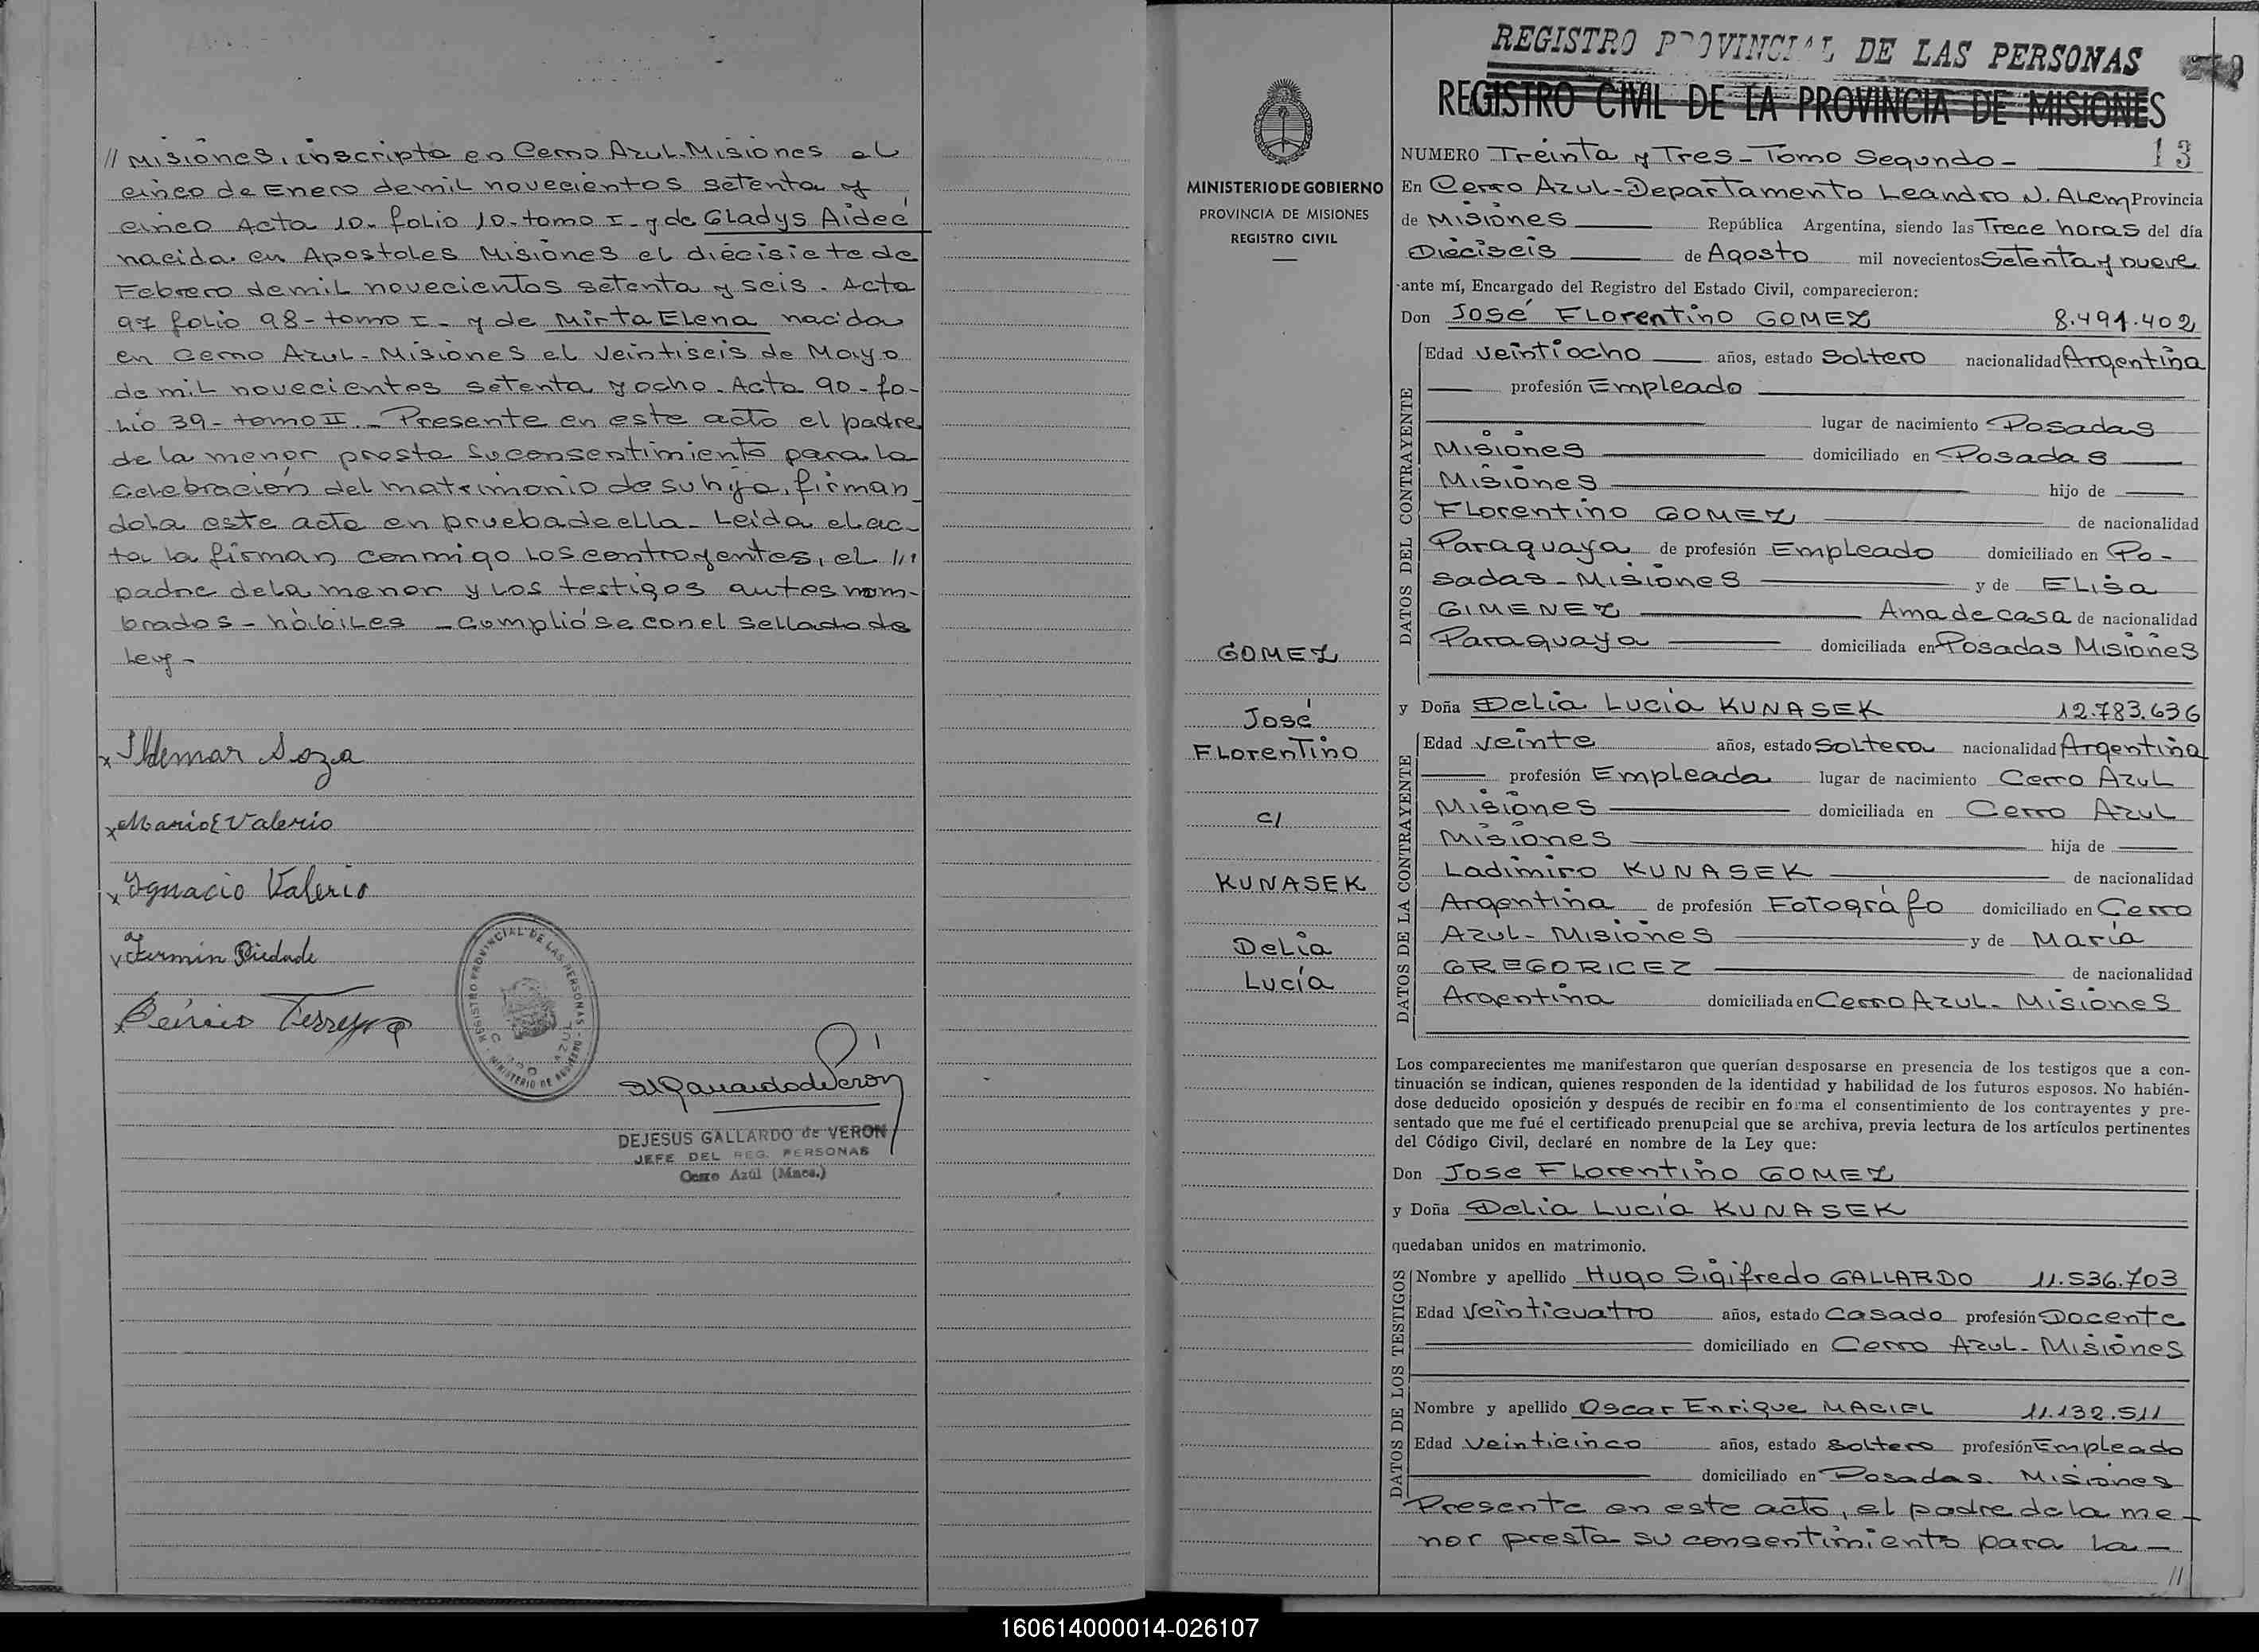 // Misiones, inscripta en Cerro Azul-Misiones el
cinco de Enero de mil novecientos setenta y
cinco Acta 10- folio 10- tomo I- y de Gladys Aideé
nacida en Apostoles Misiones el diecisiete de
Febrero de mil novecientos setenta y seis. Acta
97 folio 98- tomo I- y de Mirta Elena nacida
en Cerro Azul- Misiones el veintiseis de Mayo
de mil novecientos setenta y ocho- Acta 90- fo-
lio 39- tomo II.- Presente en este acto el padre
de la menor presta su consentimiento para la
celebración del matrimonio de su hija, firman
dola este acta en prueba de ella- Leida el ac-
ta la firman conmigo los contrayentes, el ///
padre de la menor y los testigos antes nom-
brados - hábiles - Cumplióse con el sellado de
Ley-
x Ildemar Soza
x Mario E Valerio
x Ignacio Valerio
Fermin Piedade
x Ferreyra
REGISTRO PROVINCIAL DE LAS PERSONAS - MINISTERIO DE GOBIERNO
DEJESUS GALLARDO de VERON
JEFE DEL REG. PERSONAS
Cerro Azúl (Mnes.)
MINISTERIO DE GOBIERNO
PROVINCIA DE MISIONES
REGISTRO CIVIL
GOMEZ
José
Florentino
c/
KUNASEK
Delia
Lucía
REGISTRO PROVINCIAL DE LAS PERSONAS
REGISTRO CIVIL DE LA PROVINCIA DE MISIONES
NUMERO Treinta y Tres- Tomo Segundo- 13
En Cerro Azul-Departamento Leandro N. Alem Provincia
de Misiones República Argentina, siendo las Trece horas del día
Dieciseis de Agosto mil novecientos Setenta y nueve
ante mí, Encargado del Registro del Estado Civil, comparecieron:
Don José Florentino GOMEZ 8.491.402
DATOS DEL CONTRAYENTE
Edad veintiocho años, estado Soltero nacionalidad Argentina
profesión Empleado
lugar de nacimiento Posadas
Misiones domiciliado en Posadas
Misiones hijo de
Florentino GOMEZ de nacionalidad
Paraguaya de profesión Empleado domiciliado en Po-
sadas- Misiones y de Elisa
GIMENEZ Ama de casa de nacionalidad
Paraguaya domiciliada en Posadas Misiones
y Doña Delia Lucía KUNASEK 12.783.636
DATOS DE LA CONTRAYENTE
Edad veinte años, estado Soltera nacionalidad Argentina
profesión Empleada lugar de nacimiento Cerro Azul
Misiones domiciliada en Cerro Azul
Misiones hija de
Ladimiro KUNASEK de nacionalidad
Argentina de profesión Fotográfo domiciliado en Cerro
Azul- Misiones y de María
GREGORICEZ de nacionalidad
Argentina domiciliada en Cerro Azul- Misiones
Los comparecientes me manifestaron que querían desposarse en presencia de los testigos que a con-
tinuación se indican, quienes responden de la identidad y habilidad de los futuros esposos. No habién-
dose deducido oposición y después de recibir en forma el consentimiento de los contrayentes y pre-
sentado que me fué el certificado prenupcial que se archiva, previa lectura de los artículos pertinentes
del Código Civil, declaré en nombre de la Ley que:
Don Jose Florentino GOMEZ
y Doña Delia Lucía KUNASEK
quedaban unidos en matrimonio.
DATOS DE LOS TESTIGOS
Nombre y apellido Hugo Sigifredo GALLARDO 11.536.703
Edad veinticuatro años, estado Casado profesión Docente
domiciliado en Cerro Azul- Misiones
Nombre y apellido Oscar Enrique MACIEL 11.132.511
Edad veinticinco años, estado Soltero profesión Empleado
domiciliado en Posadas. Misiones
Presente en este acto, el padre de la me-
nor presta su consentimiento para la-
//
160614000014-026107